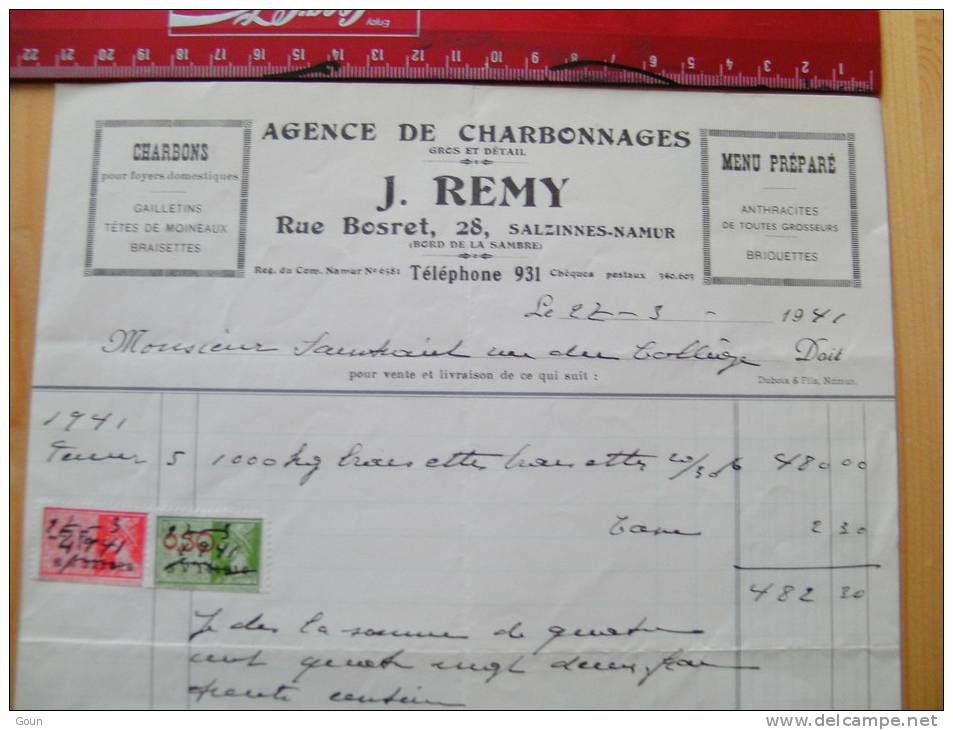 Enjoy
22 21 20 19 18 17 16 15 14 13 12 11 10 9 8 7 6 5 4 3 2 1
CHARBONS
pour foyers domestiques
GAILLETINS
TÊTES DE MOINEAUX
BRAISETTES
AGENCE DE CHARBONNAGES
GROS ET DÉTAIL
J. REMY
Rue Bosret, 28, SALZINNES-NAMUR
(BORD DE LA SAMBRE)
Reg. du Com. Namur No 6581 Téléphone 931 Chèques postaux 340.603
MENU PRÉPARÉ
ANTHRACITES
DE TOUTES GROSSEURS
BRIQUETTES
Le 27 - 3 - 1941
Monsieur rue du Collège Doit
pour vente et livraison de ce qui suit :
Dubois & Fils, Namur.
1941
5 1000 kg braisettes 20/30 480 00
Taxe 2 30
1941
0,50
1941
482 30
Je dis la somme de quatre
cent quatre vingt deux
trente
Goun
www.delcampe.net